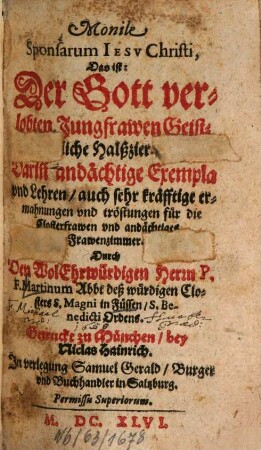 Monile
Sponsarum IESV Christi,
Das ist:
Der Gott ver-
lobten Jungfrawen Geist-
liche Halßzier.
Darin andächtige Exempla
vnd Lehren / auch sehr kräfftige er-
mahnungen vnd tröstungen für die
Closterfrawen vnd andächtige
Frawenzimmer.
Durch
Den WolEhrwürdigen Herrn P.
F. Martinum Abbt deß würdigen Clo-
sters S. Magni in Füssen / S. Be-
nedicti Ordens.
Getruckt zu München / bey
Niclas Hainrich.
In verlegung Samuel Gerald / Burger
vnd Buchhandler in Saltzburg.
Permissu Superiorum.
M. DC. XLVI.